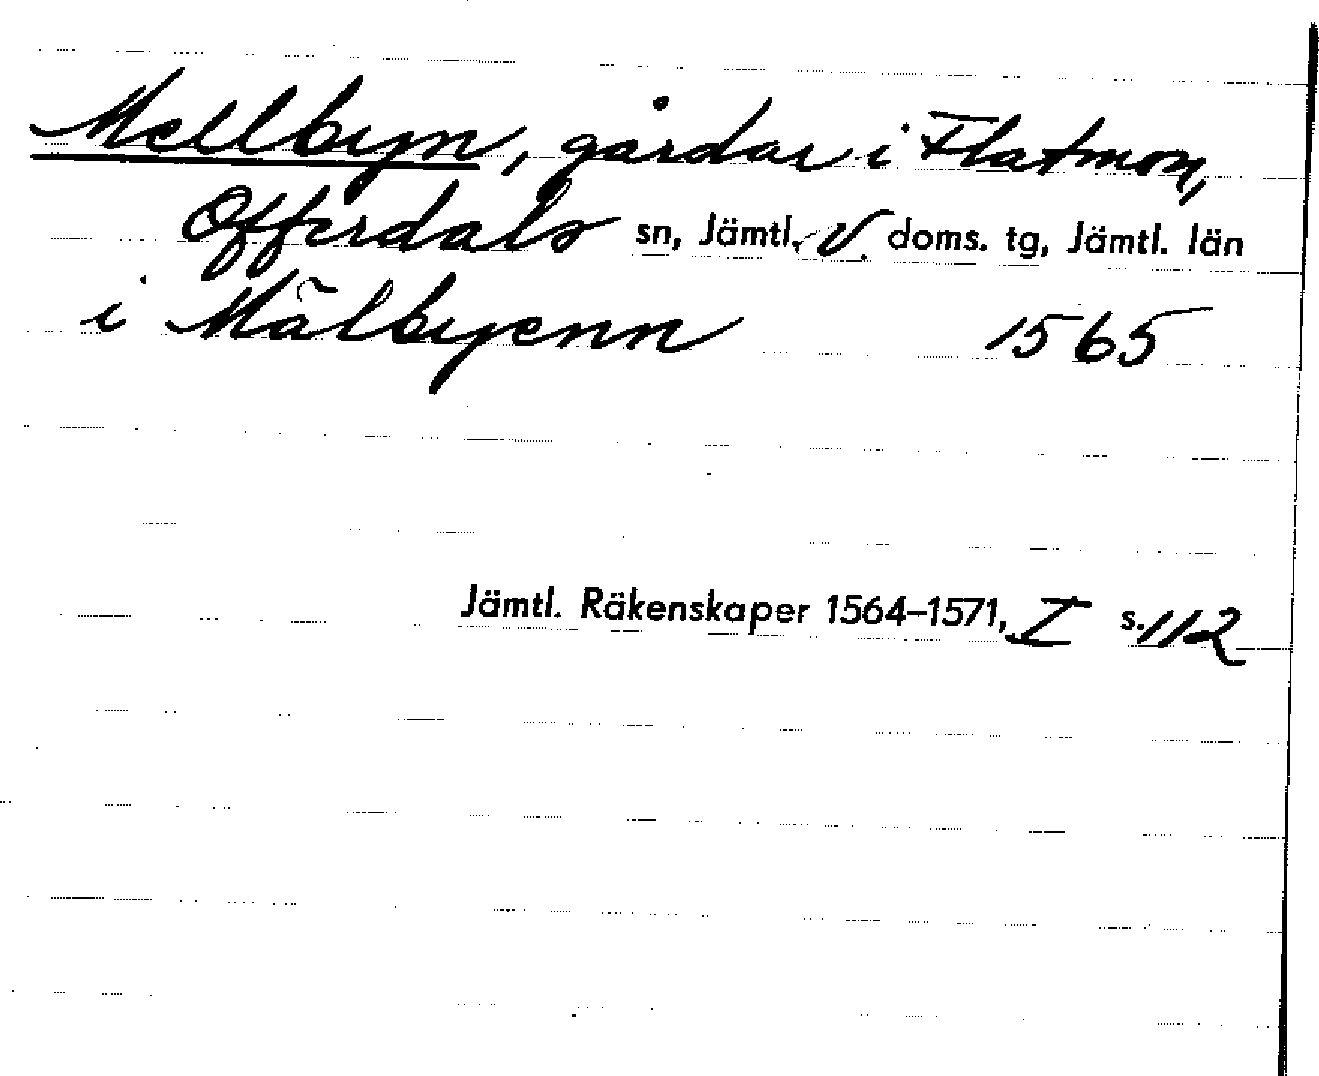 Mellbyn, gårdar i Flatmon,
Offerdals sn, Jämtl. V. doms. tg, Jämtl. län
i Mälbyenn 1565
Jämtl. Räkenskaper 1564–1571, I s. 112